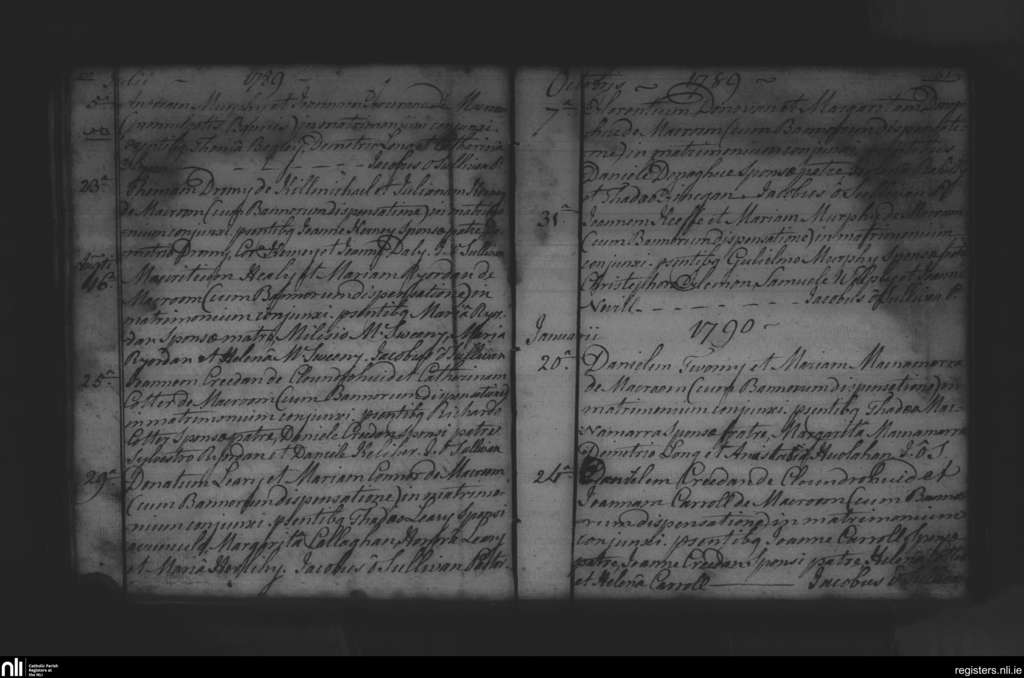 Julii 1789
5a Andream Murphy et Joannam de Macroom
in matrimonium conjunxi.
psentibq Thoma Begley, Demetrio Long et Catherina
Jacobus O Sullivan P.
23a Thomam Drony de Killmichael et Julianam Heney
de Macroom (cum Bannorum dispensatione) in matrim
onium conjunxi. psentibq Joanne Heney Sponsæ patre, De
metrio Drony, Heney et Joanne Daly. J. O Sullivan
Augti
16a Mauritium Healy et Mariam Ryordan de
Macroom (cum Bannorum dispensatione) in
matrimonium conjunxi. psentibq Maria Ryor-
dan Sponsæ matre, Milesio Mc Sweeny, Maria
Ryordan et Helenâ Mc Sweeny. Jacobus O Sullivan
25a Joannem Creedan de Cloundrohuid et Catherinam
Cotter de Macroom (cum Bannorum dispensatione)
in matrimonium conjunxi. psentibq Richardo
Cotter Sponsæ patre, Daniele Creedan Sponsi patre
Sylvestro Ryordan et Daniele Kelleher. J. O Sullivan
29a Donatum Leary et Mariam Connor de Macroom
(cum Bannorum dispensatione) in matrimo-
nium conjunxi. psentibq Thadæo Leary Sponsi
avunculo, Margarita Callaghan, Honora Leary
et Mariâ Herlihy. Jacobus O Sullivan Pastor.
Octobris 1789
7a Florentium Donovan et Margaritam Dono
ghue de Macroom (cum Bannorum dispensatio
ne) in matrimonium conjunxi. psentibus
Daniele Donoghue Sponsæ patre,
et Thadæo Finegan. Jacobus O Sullivan P.
31a Joannem Keeffe et Mariam Murphy de Macroom
(cum Bannorum dispensatione) in matrimonium
conjunxi. psentibq Gulielmo Murphy Sponsæ patre
Christophoro Samuele et Joanne
Nevill. Jacobus O Sullivan P.
Januarii 1790
20a Danielem Twomy et Mariam Macnamarra
de Macroom (cum Bannorum dispensatione) in
matrimonium conjunxi. psentibq Thadæo Mac-
namarra Sponsæ fratre, Margarita Macnamarra
Demetrio Long et Anastatia Huolahan J. O S.
24a Danielem Creedan de Cloundrohuid et
Joannam Carroll de Macroom (cum Banno-
rum dispensatione) in matrimonium
conjunxi. psentibq Joanne Carroll Sponsæ
patre, Joanne Creedan Sponsi patre, Helena
et Helenâ Carroll Jacobus O Sullivan
nli
Catholic Parish
Registers at
the NLI
registers.nli.ie